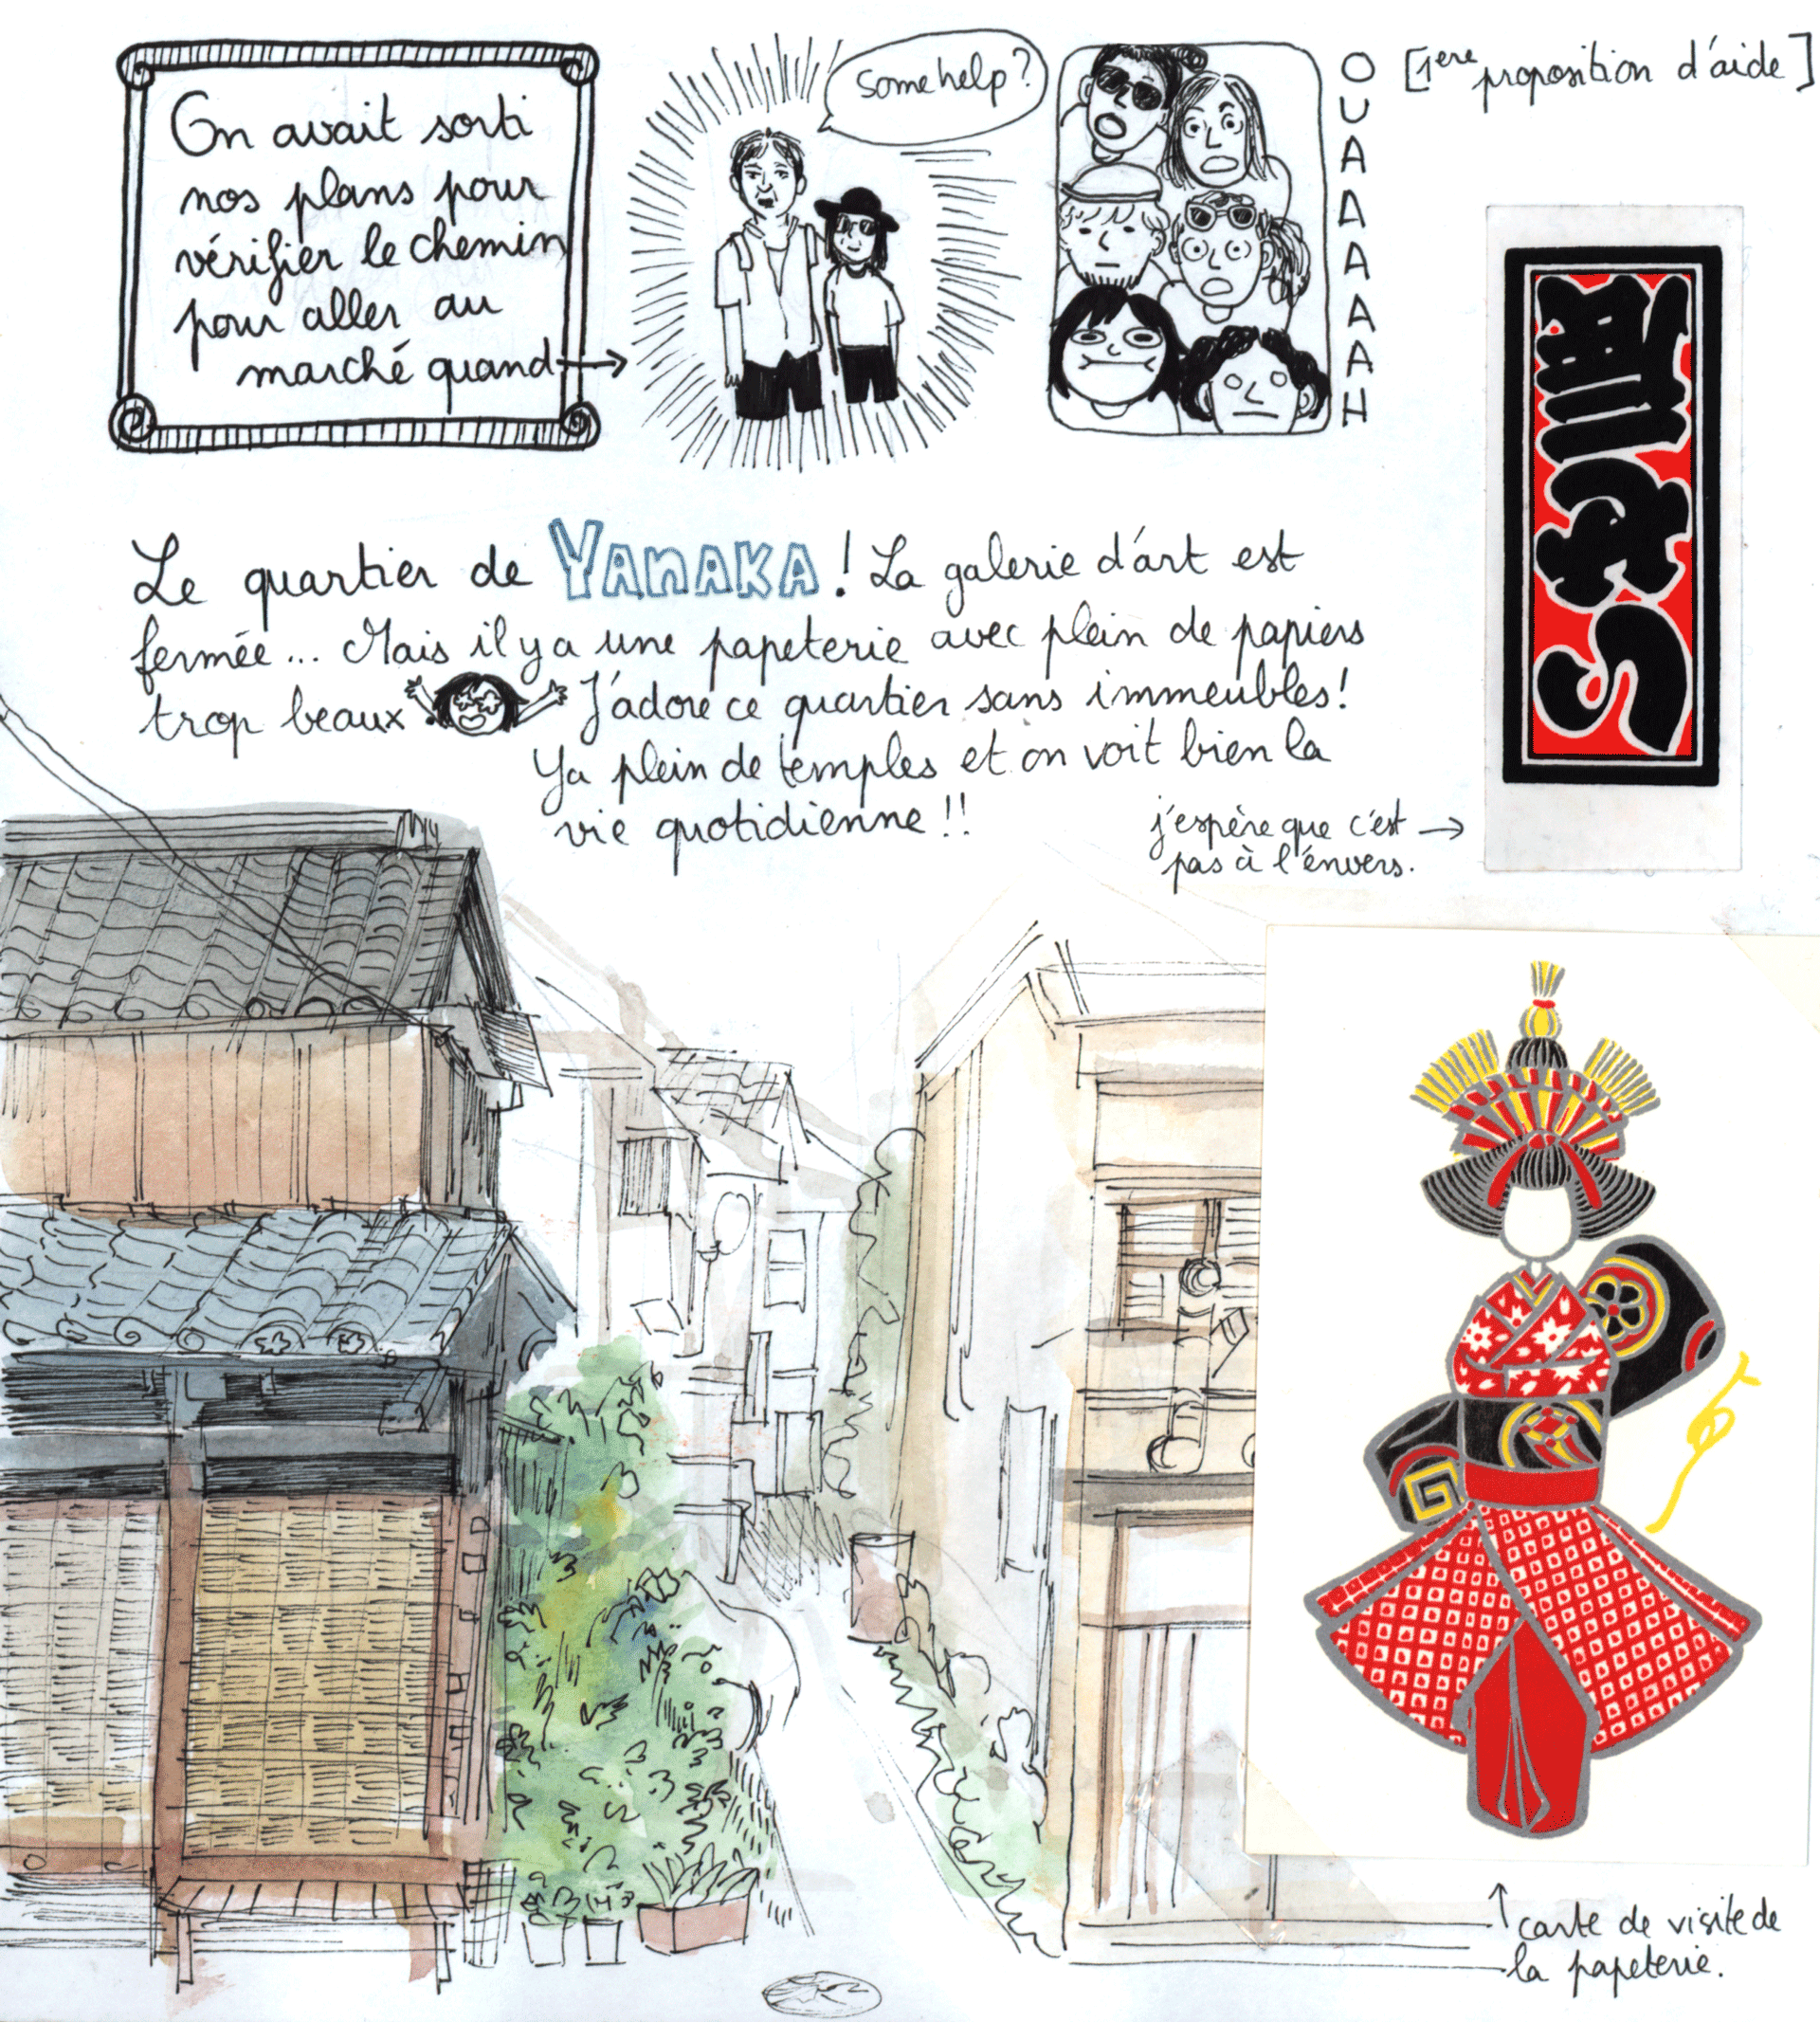 On avait sorti
nos plans pour
vérifier le chemin
pour aller au
marché quand
some help?
OUAAAAAAH
[1ere proposition d'aide]
Le quartier de YANAKA ! La galerie d'art est
fermée... Mais il y a une papeterie avec plein de papiers
trop beaux J'adore ce quartier sans immeubles!
Ya plein de temples et on voit bien la
vie quotidienne!!
j'espère que c'est
pas à l'énvers.
carte de visite de
la papeterie.